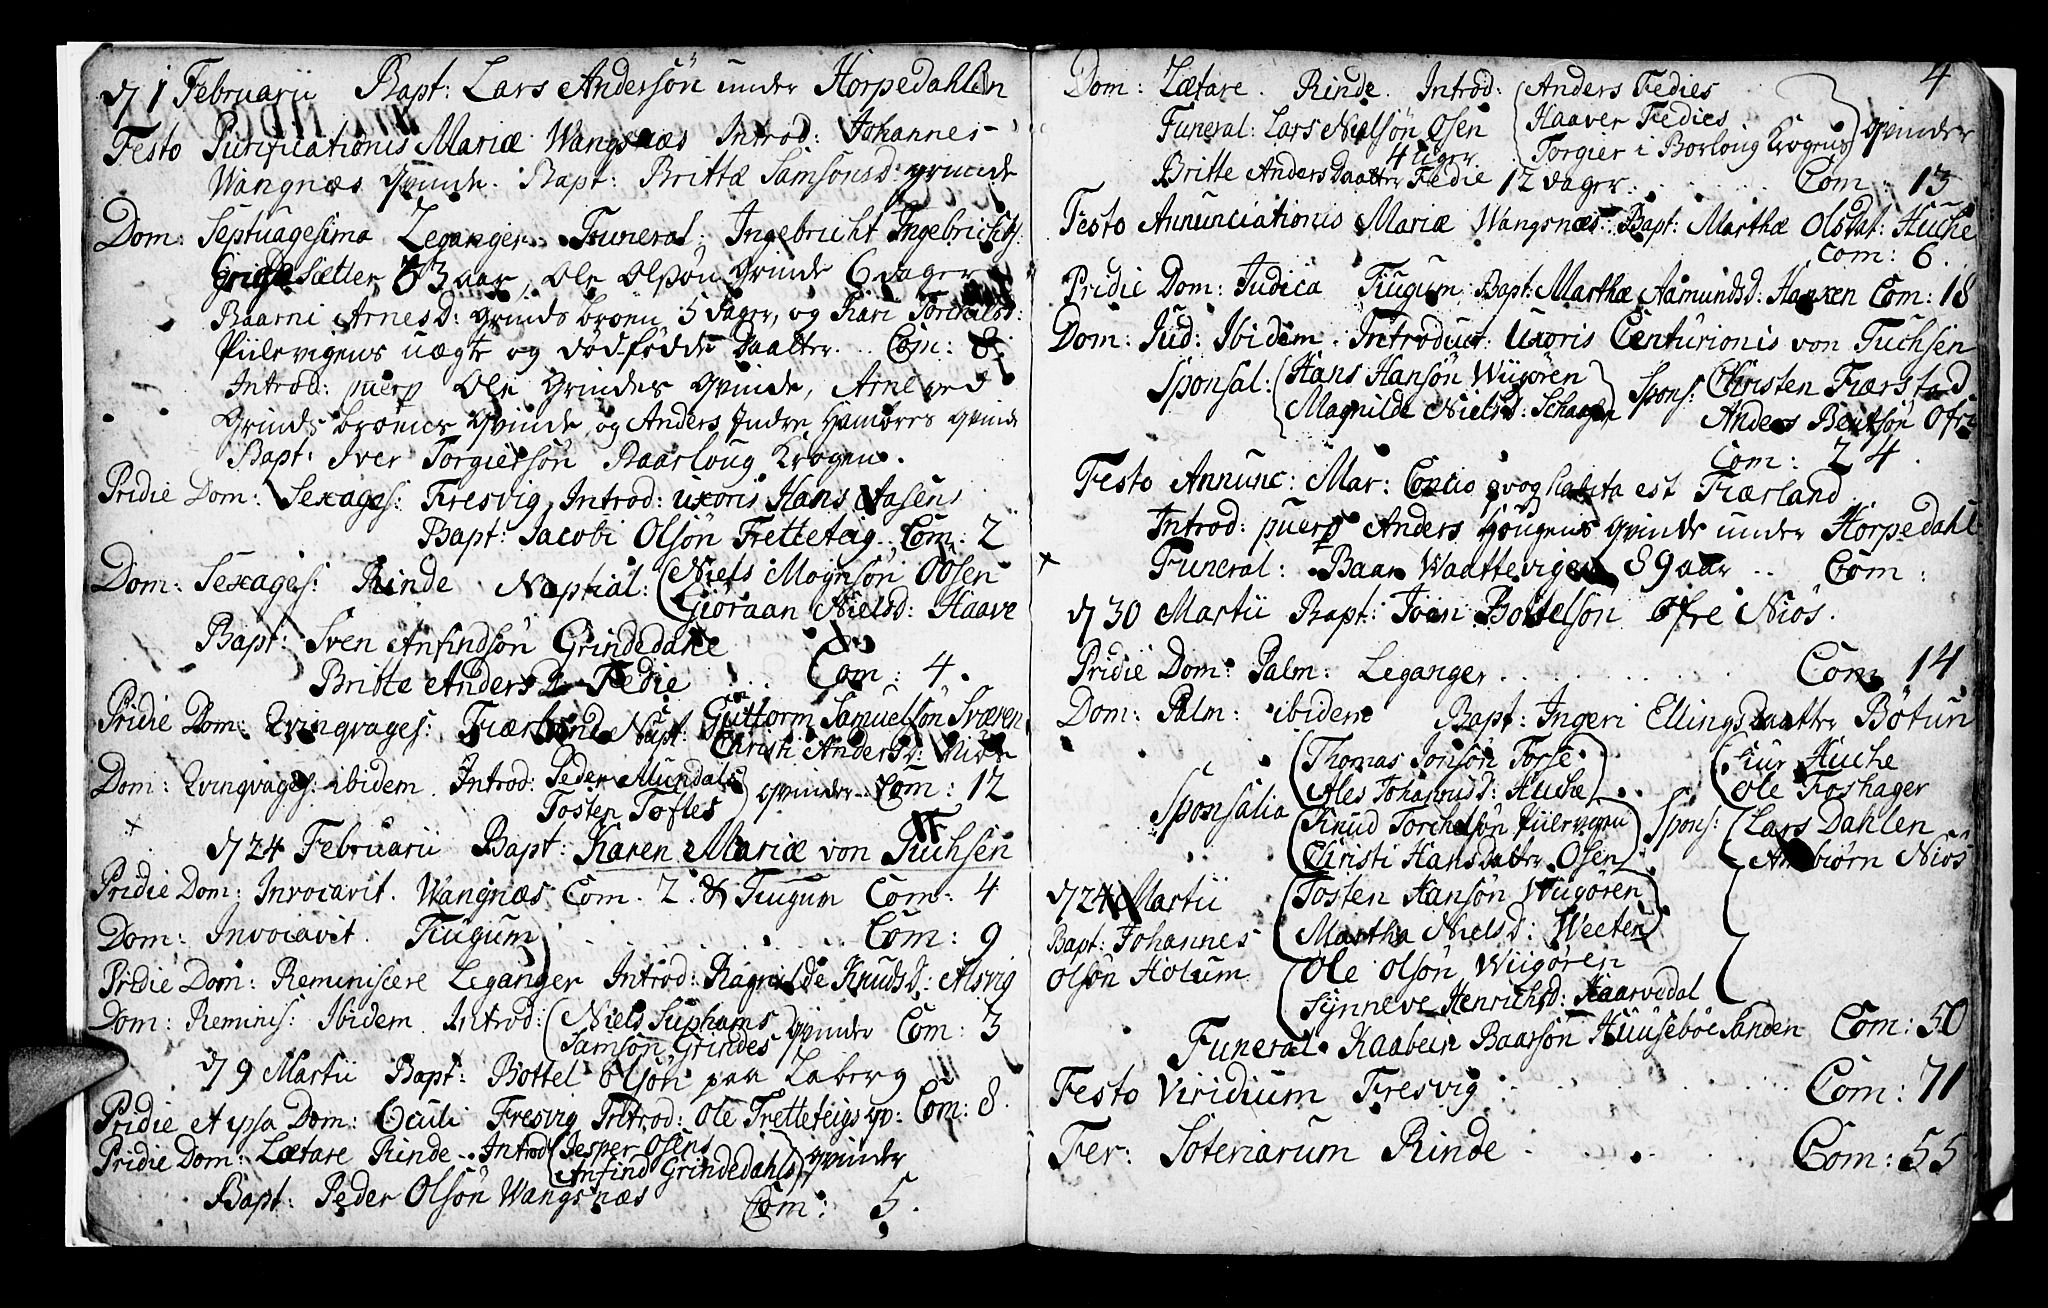 d/ 1 Februarii Bapt: Lars Andersön under Horpedahlen
Festo Purificationis Mariæ Wangsnæs Introd: Johannes
Wangnæs qvinde. Bapt: Brittæ Samsonsd: grinde
Dom: Septuagesima Leganger Funeral: Ingebricht Ingebrichts:
Sætter 83 aar, Ole Olsön Grinde 6 dager
Baarni Arnesd: Grinds broen 5 dager, og Kari Torchilsd:
Piilevigens uægte og dödfödde Daatter. Com: 8.
Introd: puerp Ole Grindes qvinde, Arne ved
Grinds broens qvinde, og Anders Indre Hamres qvinde
Bapt: Iver Torgiersön Baarloug Krogen.
Pridie Dom: Sexages: Fresvig Introd: uxoris Hans Aasens
Bapt: Jacobi Olsön Fretteteig. Com: 2
Dom: Sexages: Rinde Nuptial: Niels Mognsön Oösen
Giöraan Nielsd: Haave
Bapt: Sven Anfindsön Grindedahle
Britte Anders D: Fedie Com: 4.
Pridie Dom: Qvinqvages: Fiærland Nupt: Guttorm Samuelsön Sværen
Christi Andersd:
Dom: Qvinqvages: ibidem. Introd: Peder Mundals
Tosten Tofles qvinder Com: 12
d/ 24 Februarii Bapt: Karen Mariæ von Tuchsen
Pridie Dom: Invocavit. Wangnæs Com. 2. & Tiugum Com: 4
Dom: Invocavit. Tiugum Com: 9
Pridie Dom: Reminiscere Leganger Introd: Ragnilde Knudsd: Alsvig
Dom: Reminis: Ibidem Introd: Niels Suphams
Samson Grindes qvinder Com: 3
d/ 9 Martii Bapt: Bottel Olsön paa Laberg
Pridie et ipsa Dom: Oculi Fresvig Introd: Ole Fretteteigs qv: Com: 8.
Pridie Dom: Lætare Rinde Introd Jesper Osens
Anfind Grindedahls qvinder
Bapt: Peder Olsön Wangsnæs Com: 5.
4
Dom: Lætare. Rinde. Introd: Anders Fedies
Haaver Fedies
Torgier i Borloug Krogens qvinder
Funeral: Lars Nielsön Osen
4 uger
Britte Anders Daatter Fedie 12 dager. Com: 13
Festo Annunciationis Mariæ Wangsnæs Bapt: Marthæ Olsdat: Huche
Com: 6.
Pridie Dom: Judica Tiugum Bapt: Marthæ Aamundsd: Com: 18
Dom: Jud: Ibidem. Introduct: Uxoris Centurionis von Tuchsen
Sponsal: Hans Hansön Wiigören
Magnilde Nielsd: Spons: Christen Fiærstad
Anders Bentsön Ofre
Com: 24.
Festo Annunc: Mar: Concio qvoq habita est Fiærland
Introd: puerp Anders Hougens qvinde under Horpedahl
Funeral: Baar Waattevigen 89 aar .. Com:
d/ 30 Martii Bapt: Iven Bottelsön öfre Niös.
Pridie Dom: Palm: Leganger Com 14
Dom: Palm: ibidem Bapt: Ingeri Ellings Daatter Bötun
Sponsalia Thomas Jonsön Torse
Ales Johannisd: Huche
Kur Huche
Ole Foshager
Knud Torchelsön Piilevigen
Christi Hansdatter Osen
Spons: Lars Dahlen
Anbiörn Niös
d/ 24 Martii
Bapt: Johannes
Olsön Holum
Tosten Hansön Wiigören
Martha Nielsd: Weeten
Ole Olsön Wiigören
Synneve Henrichsd: Haarvedal
Funeral Kaabein Baarsön Huuseböe Sanden Com: 50
Festo Viridium Fresvig Com: 71
Fer: Soteriarum Rinde Com: 55